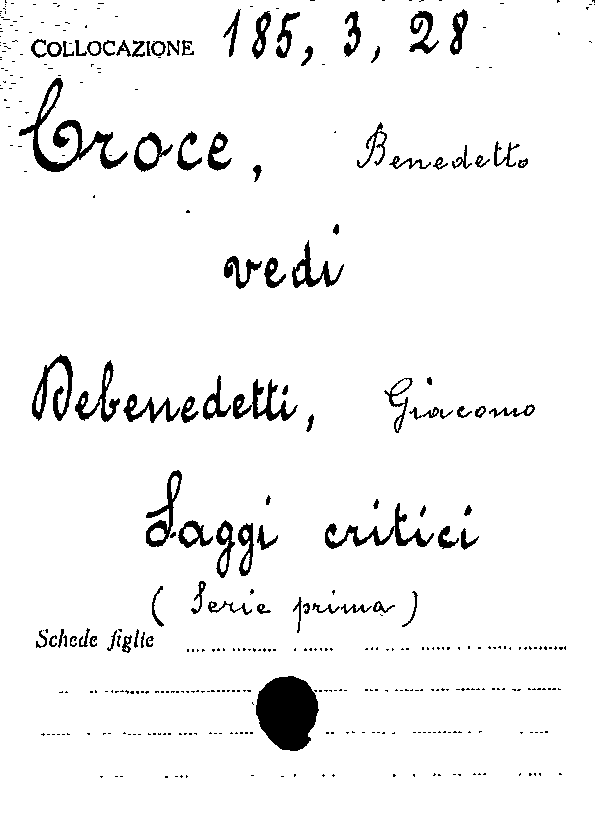 COLLOCAZIONE 185, 3, 28
Croce, Benedetto
vedi
Debenedetti, Giacomo
Saggi critici
(Serie prima)
Schede figlie